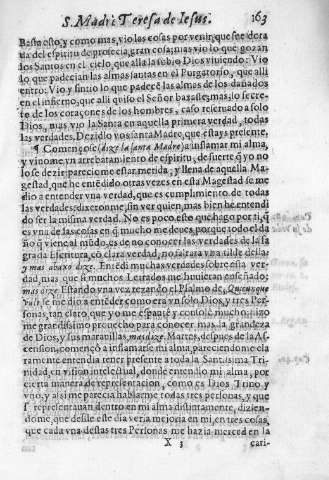 S. Madre Teresa de Iesus. 163
Basto esto, y como mas, vio las cosas por venir, que fue dera
ua del espiritu de profecia, gran cosa; mas vio lo que gozan
los Santos en el cielo, que alla lo subio Dios viuiendo: Vio
lo que padecian las almas justas en el Purgatorio, que alli
entro; Vio y sintio lo que padecē las almas de los dañados
en el infierno, que alli quiso el Señor baxasse; mas, lo secre
to de los coraçones de los hombres, caso reseruado a solo
Dios, mas vio la Santa en aquella primera verdad, todas
las verdades. Dezidlo vos santa Madre, que estays presente.
¶ Començose (dize la santa Madre) a inflamar mi alma,
y vinome vn arrebatamiento de espiritu, de suerte q̃ yo no
lo se dezir: pareciome estar metida, y llena de aquella Ma-
gestad, que he entēdido otras vezes: en esta Magestad se me
dio a entender vna verdad, que es cumplimiento de todas
las verdades: y dixeronme, sin ver quien, mas bien he entendi
do ser la misma verdad. No es poco esto que hago por ti, q̃
es vna de las cosas en q̃ mucho me deues, porque todo el da
ño q̃ viene al mūdo, es de no conocer las verdades de la sa
grada Escritura, cō clara verdad, no faltara vna tilde dellas
y mas abaxo dize. Entēdi muchas verdades sobre esta ver
dad, mas que si muchos Letrados me lo huuieran enseñado;
mas dize. Estando vna vez rezando el Psalmo de, Quicunque
vult, se me dio a entēder como era vn solo Dios, y tres Per
sonas, tan claro, que yo me espantè y consolè mucho: hizo
me grandissimo prouecho para conocer mas la grandeza
de Dios, y sus marauillas, mas dize. Martes, despues de la As-
cension, començò a inflamarse mi alma, pareciendome cla
ramente entendia tener presente a toda la Santissima Tri-
nidad, en vision intelectual, donde entendio mi alma, por
cierta manera de representacion, como es Dios Trino y
vno, y assi me parecia hablarme todas tres personas, y que
se representauan dentro en mi alma distintamente, dizien-
dome, que desde este dia veria mejoria en mi, en tres cosas,
que cada vna destas tres Personas me hazia merced en la
X 3 cari-